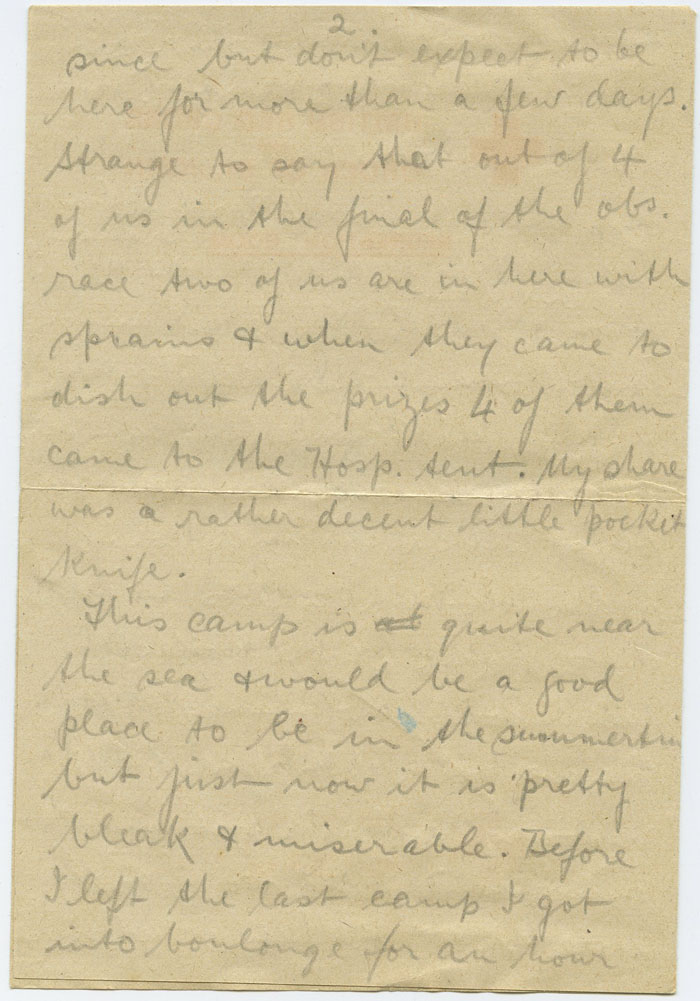 2.
since but don't expect to be
here for more than a few days.
Strange to say that out of 4
of us in the final of the obs.
race two of us are in here with
sprains & when they came to
dish out the prizes 4 of them
came to the Hosp. tent. My share
was a rather decent little pocket
knife.
This camp is at quite near
the sea & would be a good
place to be in the summertim
but just now it is pretty
bleak & miserable. Before
I left the last camp I got
into boulonge for an hour